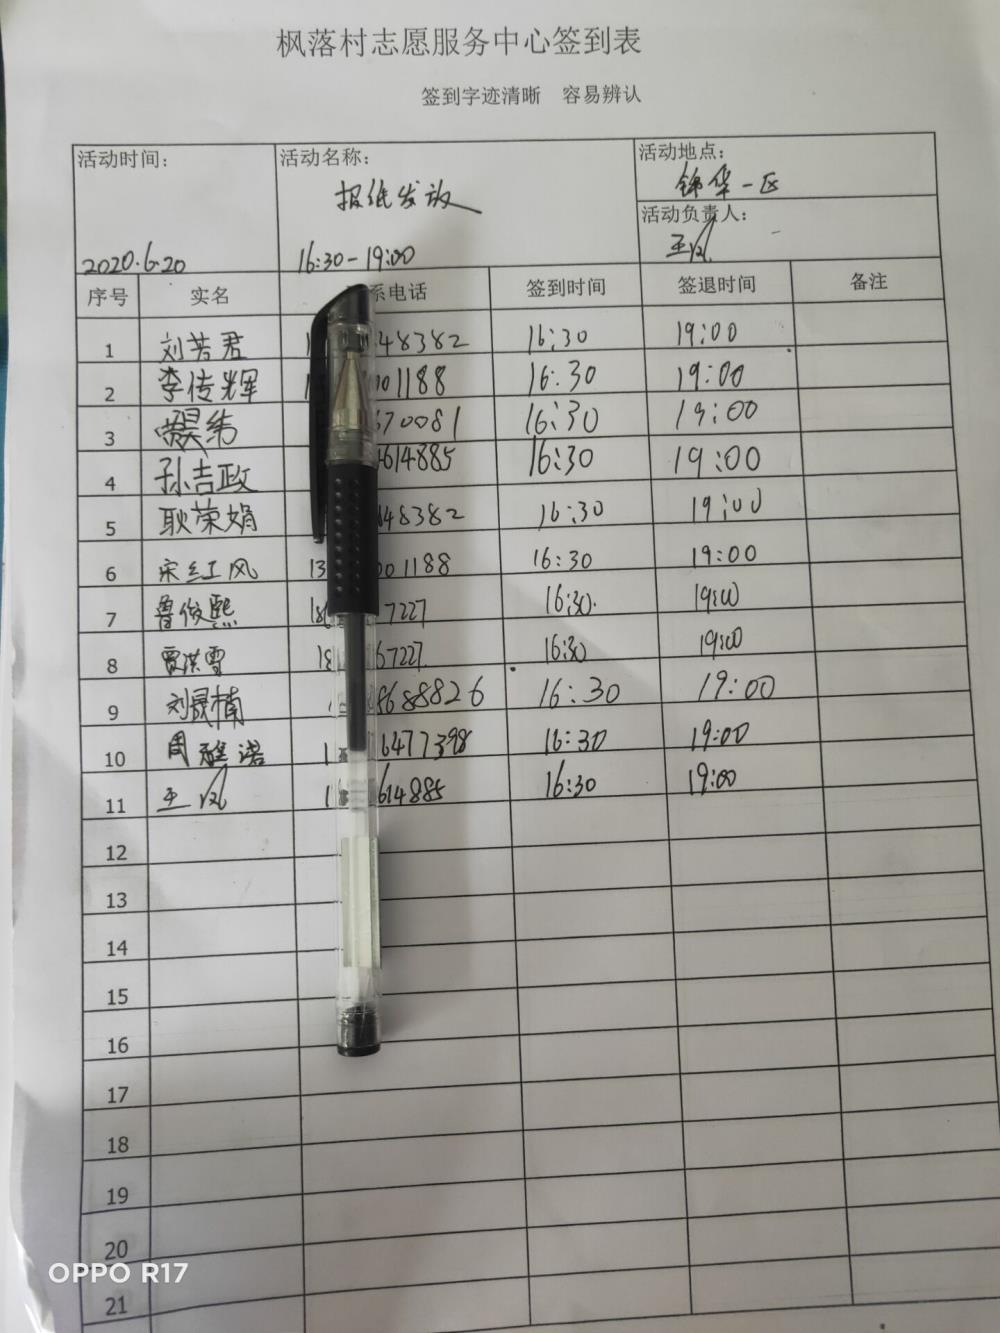 枫落村志愿服务中心签到表
签到字迹清晰 容易辨认
活动时间: 活动名称: 活动地点:
报纸发放 锦华一区
活动负责人:
2020.6.20 16:30-19:00 王凤
序号 实名 系电话 签到时间 签退时间 备注
1 刘芳君 48382 16:30 19:00
2 李传辉 01188 16:30 19:00
3 670081 16:30 19:00
4 孙吉政 614885 16:30 19:00
5 耿荣娟 48382 16:30 19:00
6 宋红风 13 001188 16:30 19:00
7 鲁俊熙 18 7227 16:30 19:00
8 贾洪雪 18 67227 16:30 19:00
9 刘晟楠 8688826 16:30 19:00
10 周 诺 1 6477398 16:30 19:00
11 王凤 1 614885 16:30 19:00
12
13
14
15
16
17
18
19
20
21
OPPO R17